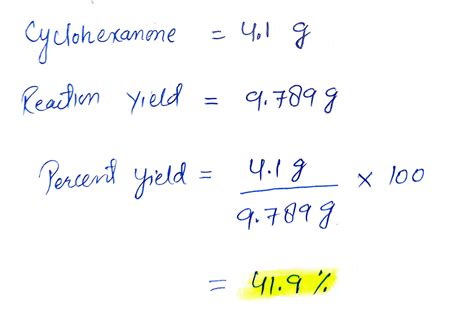 Cyclohexanone = 4.1 g
Reaction Yield = 9.789 g
Percent yield = 4.1 g / 9.789 g × 100
= 41.9 %